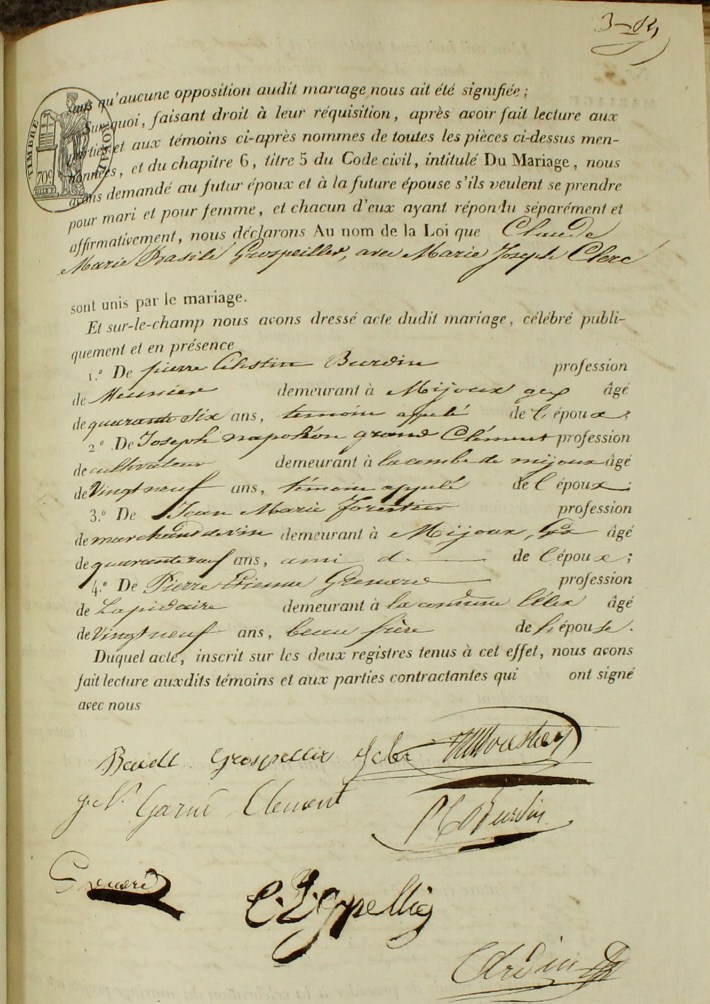 sans qu'aucune opposition audit mariage nous ait été signifiée ;
Surquoi, faisant droit à leur réquisition, après avoir fait lecture aux
parties et aux témoins ci-après nommes de toutes les pièces ci-dessus men-
tionnées, et du chapitre 6, titre 5 du Code civil, intitulé Du Mariage, nous
avons demandé au futur époux et à la future épouse s'ils veulent se prendre
pour mari et pour femme, et chacun d'eux ayant répondu séparément et
affirmativement, nous déclarons Au nom de la Loi que Claude
Marie Basile Grospellier, avec Marie Joseph Clerc
sont unis par le mariage.
Et sur-le-champ nous avons dressé acte dudit mariage, célébré publi-
quement et en présence
1.° De pierre Célestin Burdin profession
de Meunier demeurant à Mijoux gex âgé
de quarante six ans, temoin appelé de l'époux ;
2.° De Joseph napoléon grand Clément profession
de cultivateur demeurant à la combe de mijoux âgé
de Vingt neuf ans, témoin appelé de l'époux ;
3.° De Jean Marie Forestier profession
de marchand de vin demeurant à Mijoux, Gex âgé
de quarante neuf ans, ami d de l'époux ;
4.° De Pierre Etienne Grenard profession
de Lapidaire demeurant à la commune Lélex âgé
de Vingt neuf ans, beau frère de l'épouse.
Duquel acte, inscrit sur les deux registres tenus à cet effet, nous avons
fait lecture auxdits témoins et aux parties contractantes qui ont signé
avec nous
TIMBRE
ROYAL
70c
Grospellier
J. N. Clement
Burdin
Grenard